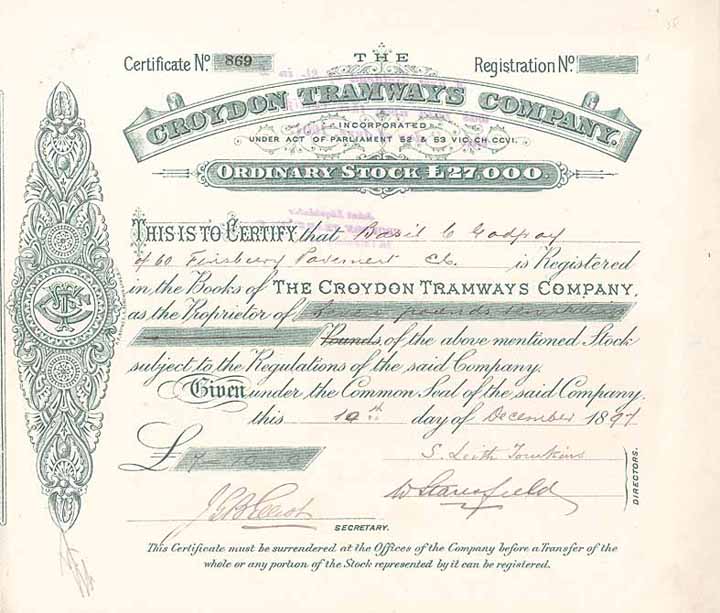 THE
Certificate No. 869
Registration No.
CROYDON TRAMWAYS COMPANY.
INCORPORATED
UNDER ACT OF PARLIAMENT 52 & 53 VIC. CH. CCVI.
ORDINARY STOCK £27,000.
THIS IS TO CERTIFY that Basil C Godfray
of 60 Finsbury Pavement is Registered
in the Books of THE CROYDON TRAMWAYS COMPANY,
as the Proprietor of pounds ten shillings
Pounds of the above mentioned Stock
subject to the Regulations of the said Company.
Given under the Common Seal of the said Company.
this 10th day of December 1897
£
S. Leith Tomkins
DIRECTORS.
W Stansfield
SECRETARY.
This Certificate must be surrendered at the Offices of the Company before a Transfer of the
whole or any portion of the Stock represented by it can be registered.